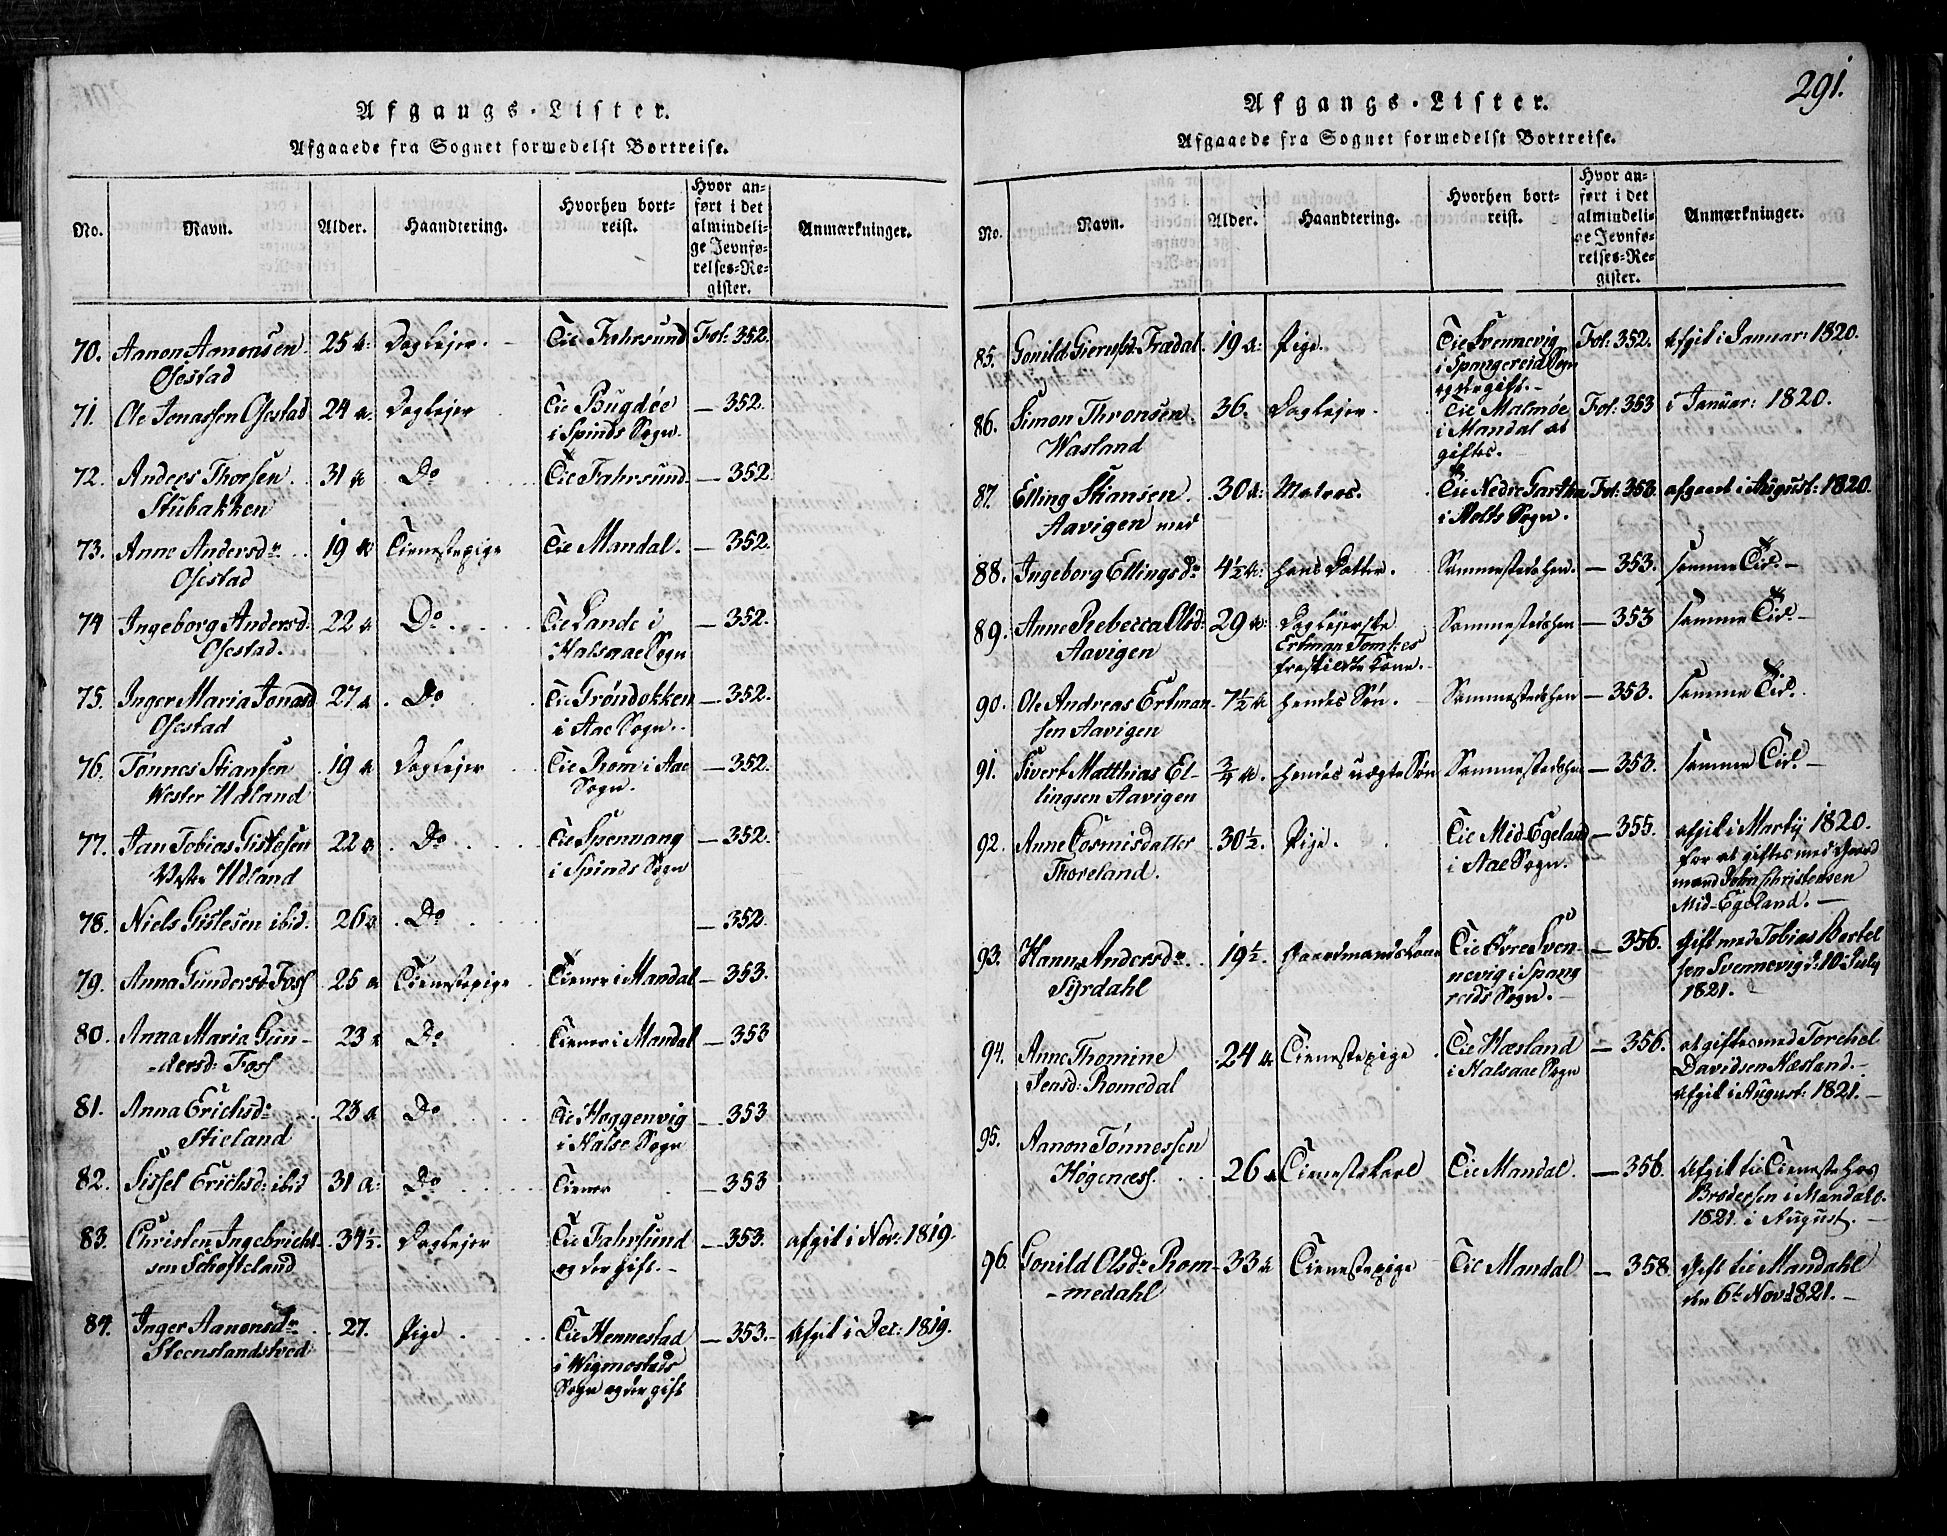 Afgangs-Lister.
Afgaaede fra Sognet formedelst Bortreise.
No. Navn. Alder. Haandtering. Hvorhen bortreist. Hvor anført i det almindelige Jevnførelses-Register. Anmærkninger.
70. Aanon Aanonsen 25 a: Dagleier. Til Fahrsund Fol: 352.
Osestad
71. Ole Jonassen Osestad 24 a. Dagleier Til Bugdøe — 352.
i Spinds Sogn.
72. Anders Thorsen 31 a Do Til Fahrsund — 352.
Stubakken
73. Anne Andersdr 19 a Tienestepige Til Mandal. — 352.
Osestad
74 Ingeborg Andersd: 22 a Do. Til Lande i — 352.
Osestad. Halsaae Sogn
75. Inger Maria Jonasd 27 a. Do Til Trøndokken — 352.
Osestad i Aae Sogn.
76. Tønnes Stiansen 19 a Dagleier Til Rom i Aae — 352.
Wester Udland Sogn.
77. Jan Tobias Gislesen 22 a. Do Til Spennang — 352.
Vester Udland i Spinds Sogn
78. Niels Gislesen ibid. 26 a. Do — 352.
79. Anna Gundersd Foss 25 a Tienestepige Tiener i Mandal — 353.
80. Anna Maria Gun- 23 a Do Tiener i Mandal — 353
-dersd: Foss
81. Anna Erichsdr 23 a Do Til Hoggenvig — 353
Stieland i Halse Sogn
82. Sissel Erichsd: ibid 31 a: Do Tiener — 353
83. Christen Ingebricht- 34½. Dagleier Til Fahrsund — 353. afgik i Nov: 1819.
sen Schofteland og der gift. —
84. Inger Aanonsdr 27. Pige. Til Hennestad — 353. — Afgik i Dec: 1819.
Steenslandstvød i Wigmostads
Sogn og der gift
291.
Afgangs-Lister.
Afgaaede fra Sognet formedelst Bortreise.
No. Navn. Alder. Haandtering. Hvorhen bortreist. Hvor anført i det almindelige Jevnførelses-Register. Anmærkninger.
85. Gonild Fradal. 19 a: Pige. Til Svennevig Fol: 352. Afgik i Januar: 1820.
i Spangereid Sogn
og der gift. —
86. Simon Thronsen 36. Dagleier. Til Malmøe Fol: 353 i Januar: 1820.
Wasland i Mandal at
giftes.
87. Elling Stiansen 30 a: Matros. Til Nedre Gartha Fol: 353. afgaaet i August: 1820.
Aavigen med i Holts Sogn.
88. Ingeborg Ellingsdr 4½ a: hans Datter. Sammestedshen. — 353. samme Tid. —
89. Anne Rebecca Olsd: 29 a: Dagleierske Sammestedshen — 353 samme Tid. —
Aavigen Ertman Tomkes
fraskildte Kone.
90. Ole Andreas Ertman- 7½ a hendes Søn. Sammestedshen — 353. samme Tid.
sen Aavigen
91. Sivert Matthias El- ¾ a. hendes uægte Søn Sammestedshen — 353. samme Tid. —
lingsen Aavigen
92. Anne Tormisdatter 30½. Pige. Til Mid Egeland — 355. afgik i Martij 1820.
Thoreland. i Aae Sogn. for at giftes med Gaard
mand John Christensen
Mid-Egeland. —
93. Hanna Andersdr 19½. Gaardmandskone Til Øvre Sven- — 356. Gift med Tobias Bertel
Syrdahl nevig i Spang sen Svennevig d: 10 July
reids Sogn. — 1821. —
94. Anne Thomine 24 a Tienestepige Til Hæsland — 356. at giftes med Torchel
Jensd: Romedal i Halsaae Sogn Davidsen Hæsland. —
Afgik i August: 1821. —
95. Aanon Tønnessen
Høgeness. 26 a Tienestekarl Til Mandal. — 356. Afgik til Tieneste hos
Brodersen i Mandahl
1821 i August. —
96. Gonild Olsdr Rom- 33 a Tienestepige Til Mandal — 358. Gift til Mandahl
-medahl den 6te Nov 1821. —